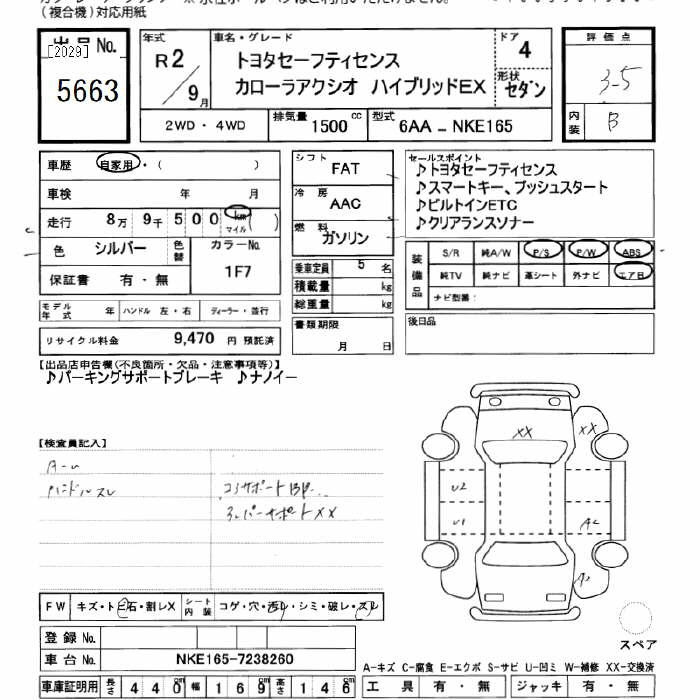 (複合機)対応用紙
出品No.
[2029]
5663
年式
R2/9月
車名・グレード
トヨタセーフティセンス
カローラアクシオ ハイブリッドEX
ドア
4
形状
セダン
評価点
3.5
内装
B
2WD・4WD
排気量 1500cc
型式 6AA-NKE165
車歴 自家用・( )
車検 年 月
走行 8万 9千 5 0 0 km マイル ( )
色 シルバー 色替
カラーNo.
1F7
保証書 有・無
モデル年式 年 ハンドル 左・右 ディーラー・並行
リサイクル料金 9,470 円 預託済
シフト FAT
冷房 AAC
燃料 ガソリン
乗車定員 5 名
積載量 kg
総重量 kg
書類期限
月 日
セールスポイント
♪トヨタセーフティセンス
♪スマートキー、プッシュスタート
♪ビルトインETC
♪クリアランスソナー
装備品
S/R 純A/W P/S P/W ABS
純TV 純ナビ 革シート 外ナビ エアB
ナビ型番:
後日品
【出品店申告欄(不良箇所・欠品・注意事項等)】
♪パーキングサポートブレーキ ♪ナノイー
【検査員記入】
ハンドルスレ
コアサポート
XX
XX
XX
U2
U1
A2
FW キズ・トビ石・割レX
シート内装 コゲ・穴・汚レ・シミ・破レ・スレ
登録No.
車台No. NKE165-7238260
車庫証明用 長さ 440 幅 169 高さ 146
スペア
A-キズ C-腐食 E-エクボ S-サビ U-凹ミ W-補修 XX-交換済
工具 有・無 ジャッキ 有・無